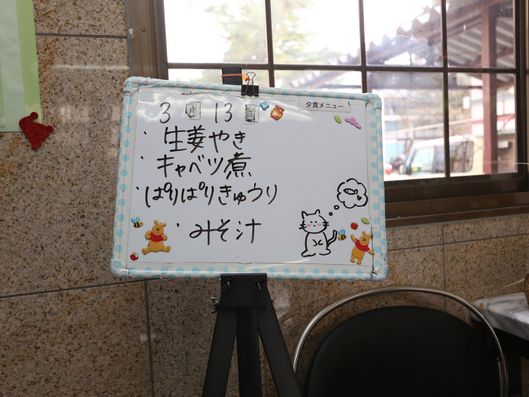 夕食メニュー
3月13日
・生姜やき
・キャベツ煮
・ぱりぱりきゅうり
・みそ汁